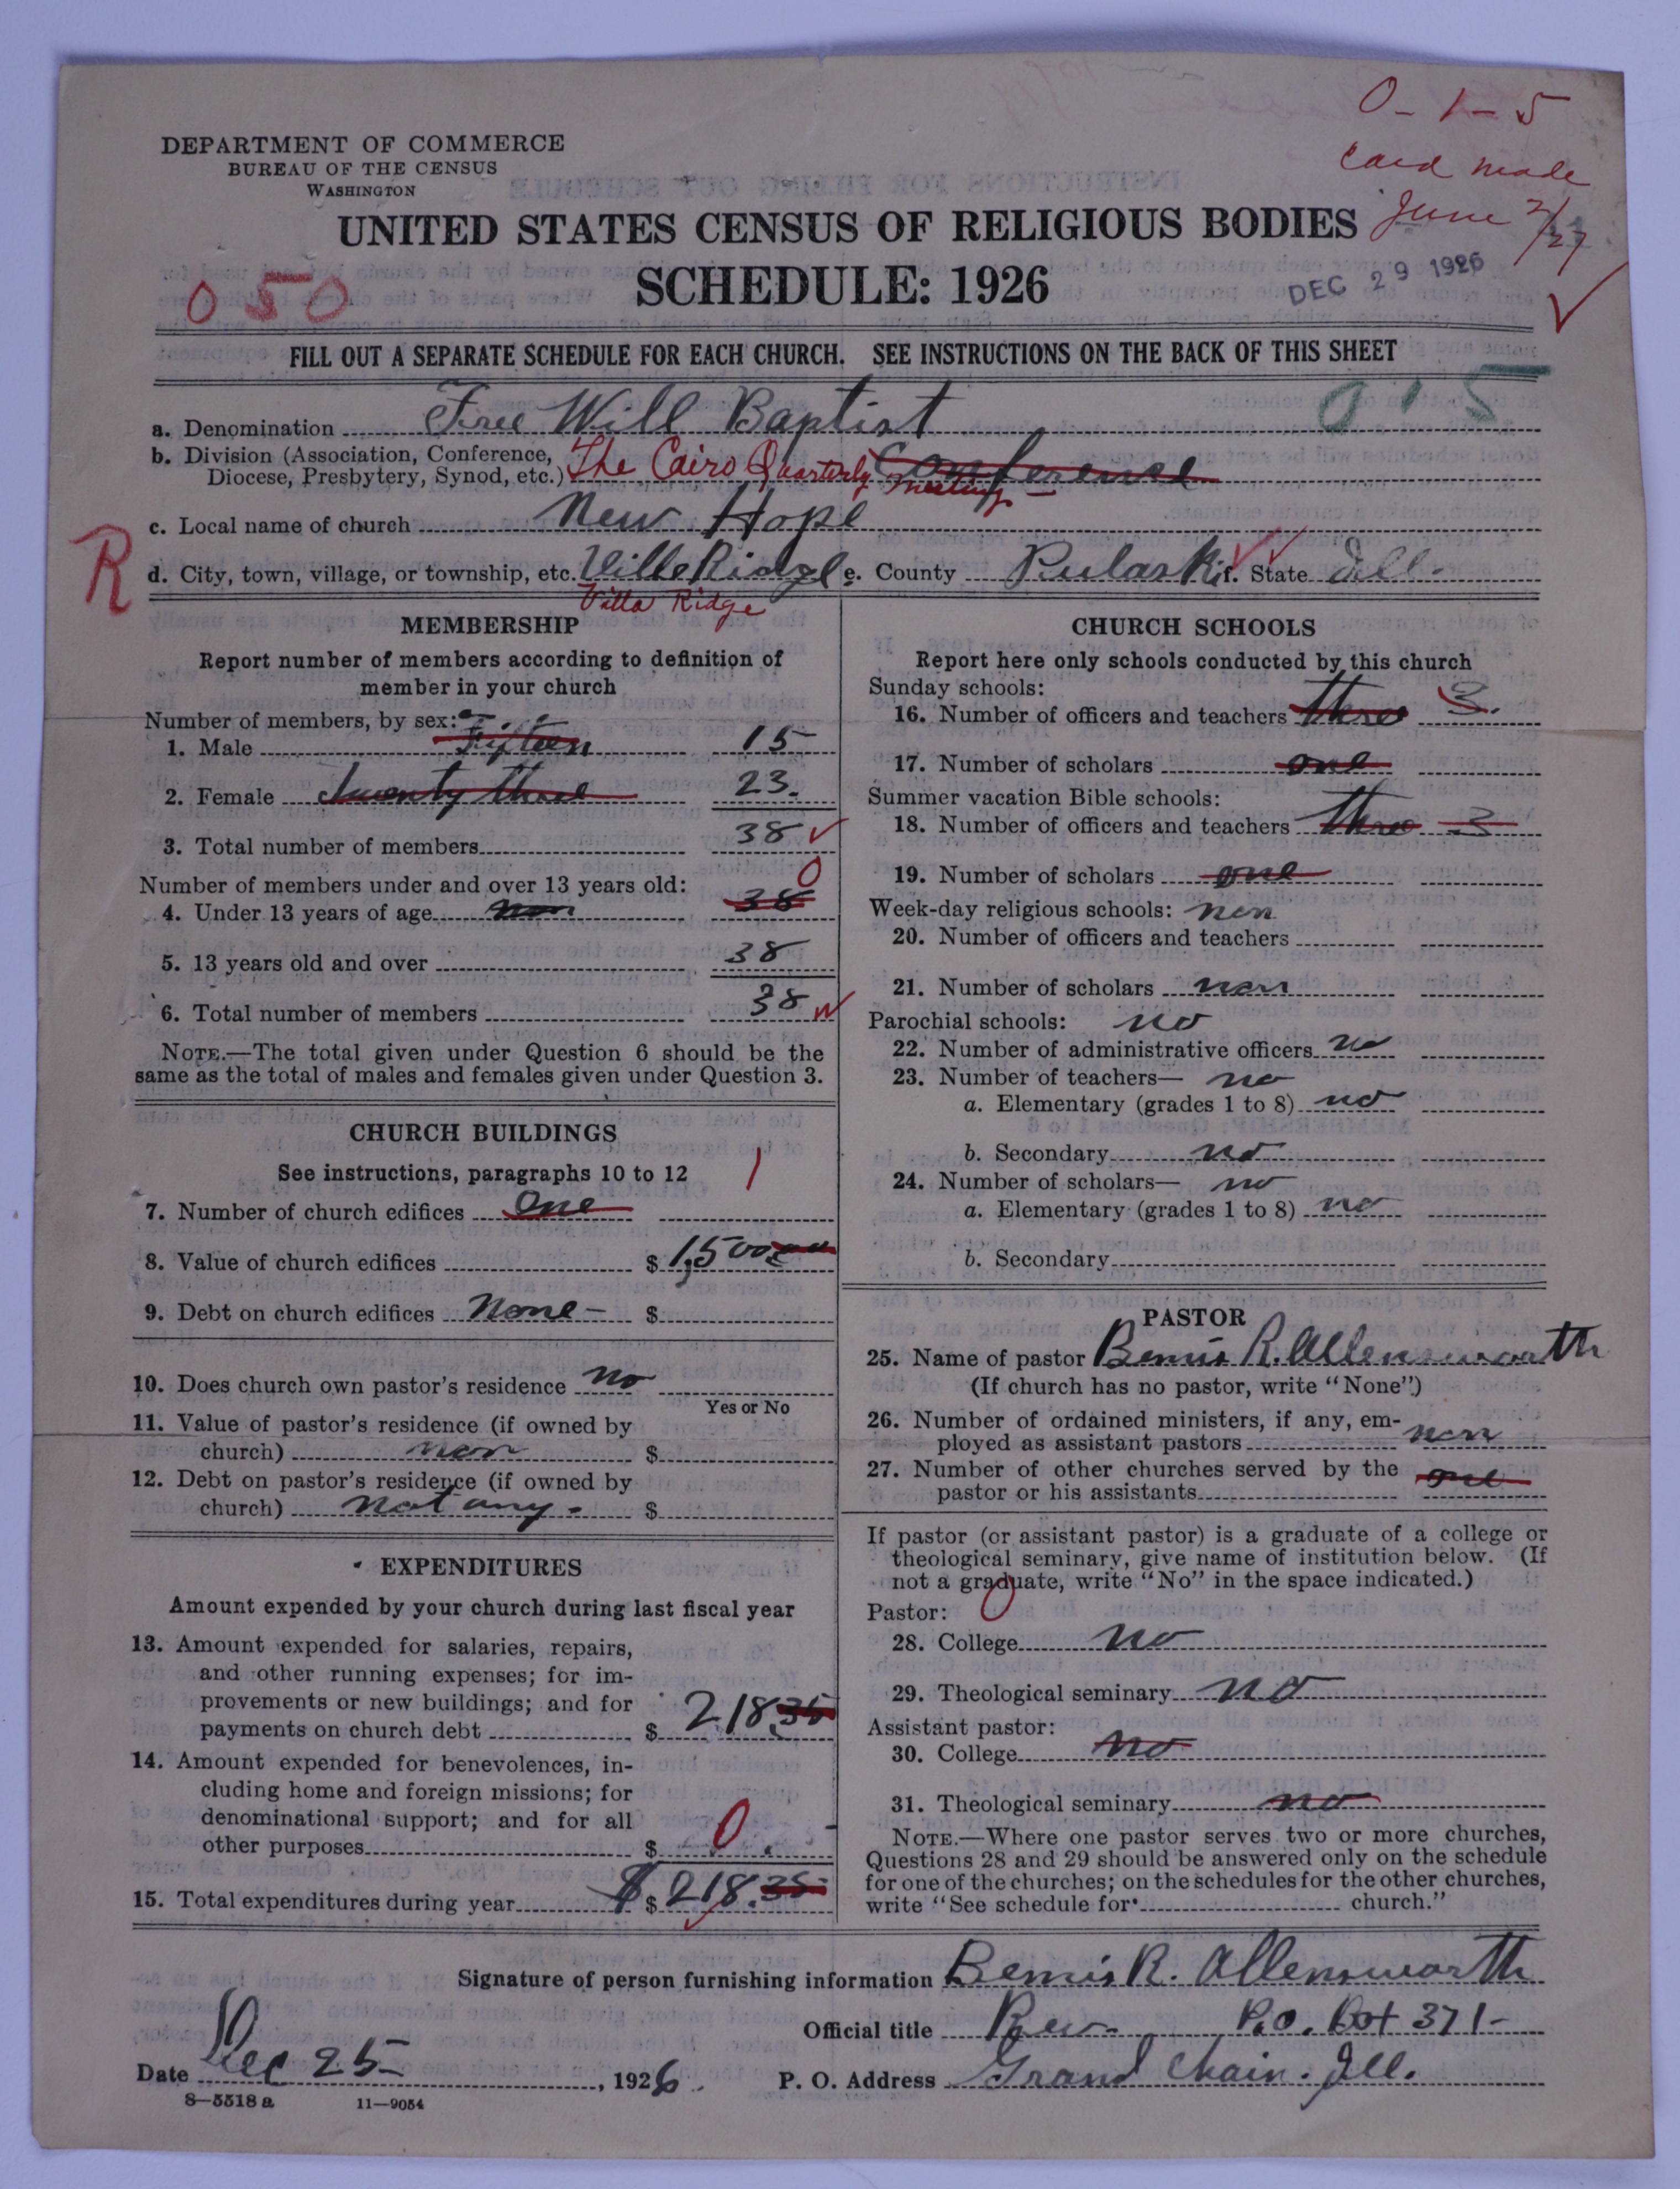 0-1-5
Card made
June 2/27
DEPARTMENT OF COMMERCE
BUREAU OF THE CENSUS
WASHINGTON
UNITED STATES CENSUS OF RELIGIOUS BODIES
SCHEDULE: 1926
DEC 29 1926
050
FILL OUT A SEPARATE SCHEDULE FOR EACH CHURCH. SEE INSTRUCTIONS ON THE BACK OF THIS SHEET
015
a. Denomination Free Will Baptist
b. Division (Association, Conference, Diocese, Presbytery, Synod, etc.) The Cairo Quarterly Conference
meeting
c. Local name of church New Hope
R
d. City, town, village, or township, etc. Ville Ridge e. County Pulaski f. State Ill.
Villa Ridge
MEMBERSHIP
Report number of members according to definition of
member in your church
Number of members, by sex:
1. Male Fifteen 15
2. Female Twenty three 23.
3. Total number of members 38
Number of members under and over 13 years old:
0
4. Under 13 years of age non 38
5. 13 years old and over 38
6. Total number of members 38
NOTE.—The total given under Question 6 should be the
same as the total of males and females given under Question 3.
CHURCH BUILDINGS
See instructions, paragraphs 10 to 12
1
7. Number of church edifices One
8. Value of church edifices $ 1,500.00
9. Debt on church edifices None- $
10. Does church own pastor's residence no
Yes or No
11. Value of pastor's residence (if owned by
church) non $
12. Debt on pastor's residence (if owned by
church) not any. $
EXPENDITURES
Amount expended by your church during last fiscal year
13. Amount expended for salaries, repairs,
and other running expenses; for im-
provements or new buildings; and for
payments on church debt $ 218.35
14. Amount expended for benevolences, in-
cluding home and foreign missions; for
denominational support; and for all
other purposes $ 0.
15. Total expenditures during year $ $ 218.35
CHURCH SCHOOLS
Report here only schools conducted by this church
Sunday schools:
16. Number of officers and teachers three 3.
17. Number of scholars one
Summer vacation Bible schools:
18. Number of officers and teachers three 3
19. Number of scholars one
Week-day religious schools: non
20. Number of officers and teachers
21. Number of scholars non
Parochial schools: no
22. Number of administrative officers no
23. Number of teachers— no
a. Elementary (grades 1 to 8) no
b. Secondary no
24. Number of scholars— no
a. Elementary (grades 1 to 8) no
b. Secondary
PASTOR
25. Name of pastor Bemis R. Allensworth
(If church has no pastor, write "None")
26. Number of ordained ministers, if any, em-
ployed as assistant pastors non
27. Number of other churches served by the
pastor or his assistants one
If pastor (or assistant pastor) is a graduate of a college or
theological seminary, give name of institution below. (If
not a graduate, write "No" in the space indicated.)
Pastor: 0
28. College no
29. Theological seminary no
Assistant pastor:
30. College no
31. Theological seminary no
NOTE.—Where one pastor serves two or more churches,
Questions 28 and 29 should be answered only on the schedule
for one of the churches; on the schedules for the other churches,
write "See schedule for church."
Signature of person furnishing information Bemis R. Allensworth
Official title Rev. P.O. Box 371-
Date Dec 25, 1926. P. O. Address Grand Chain. Ill.
8—5518 a 11—9054